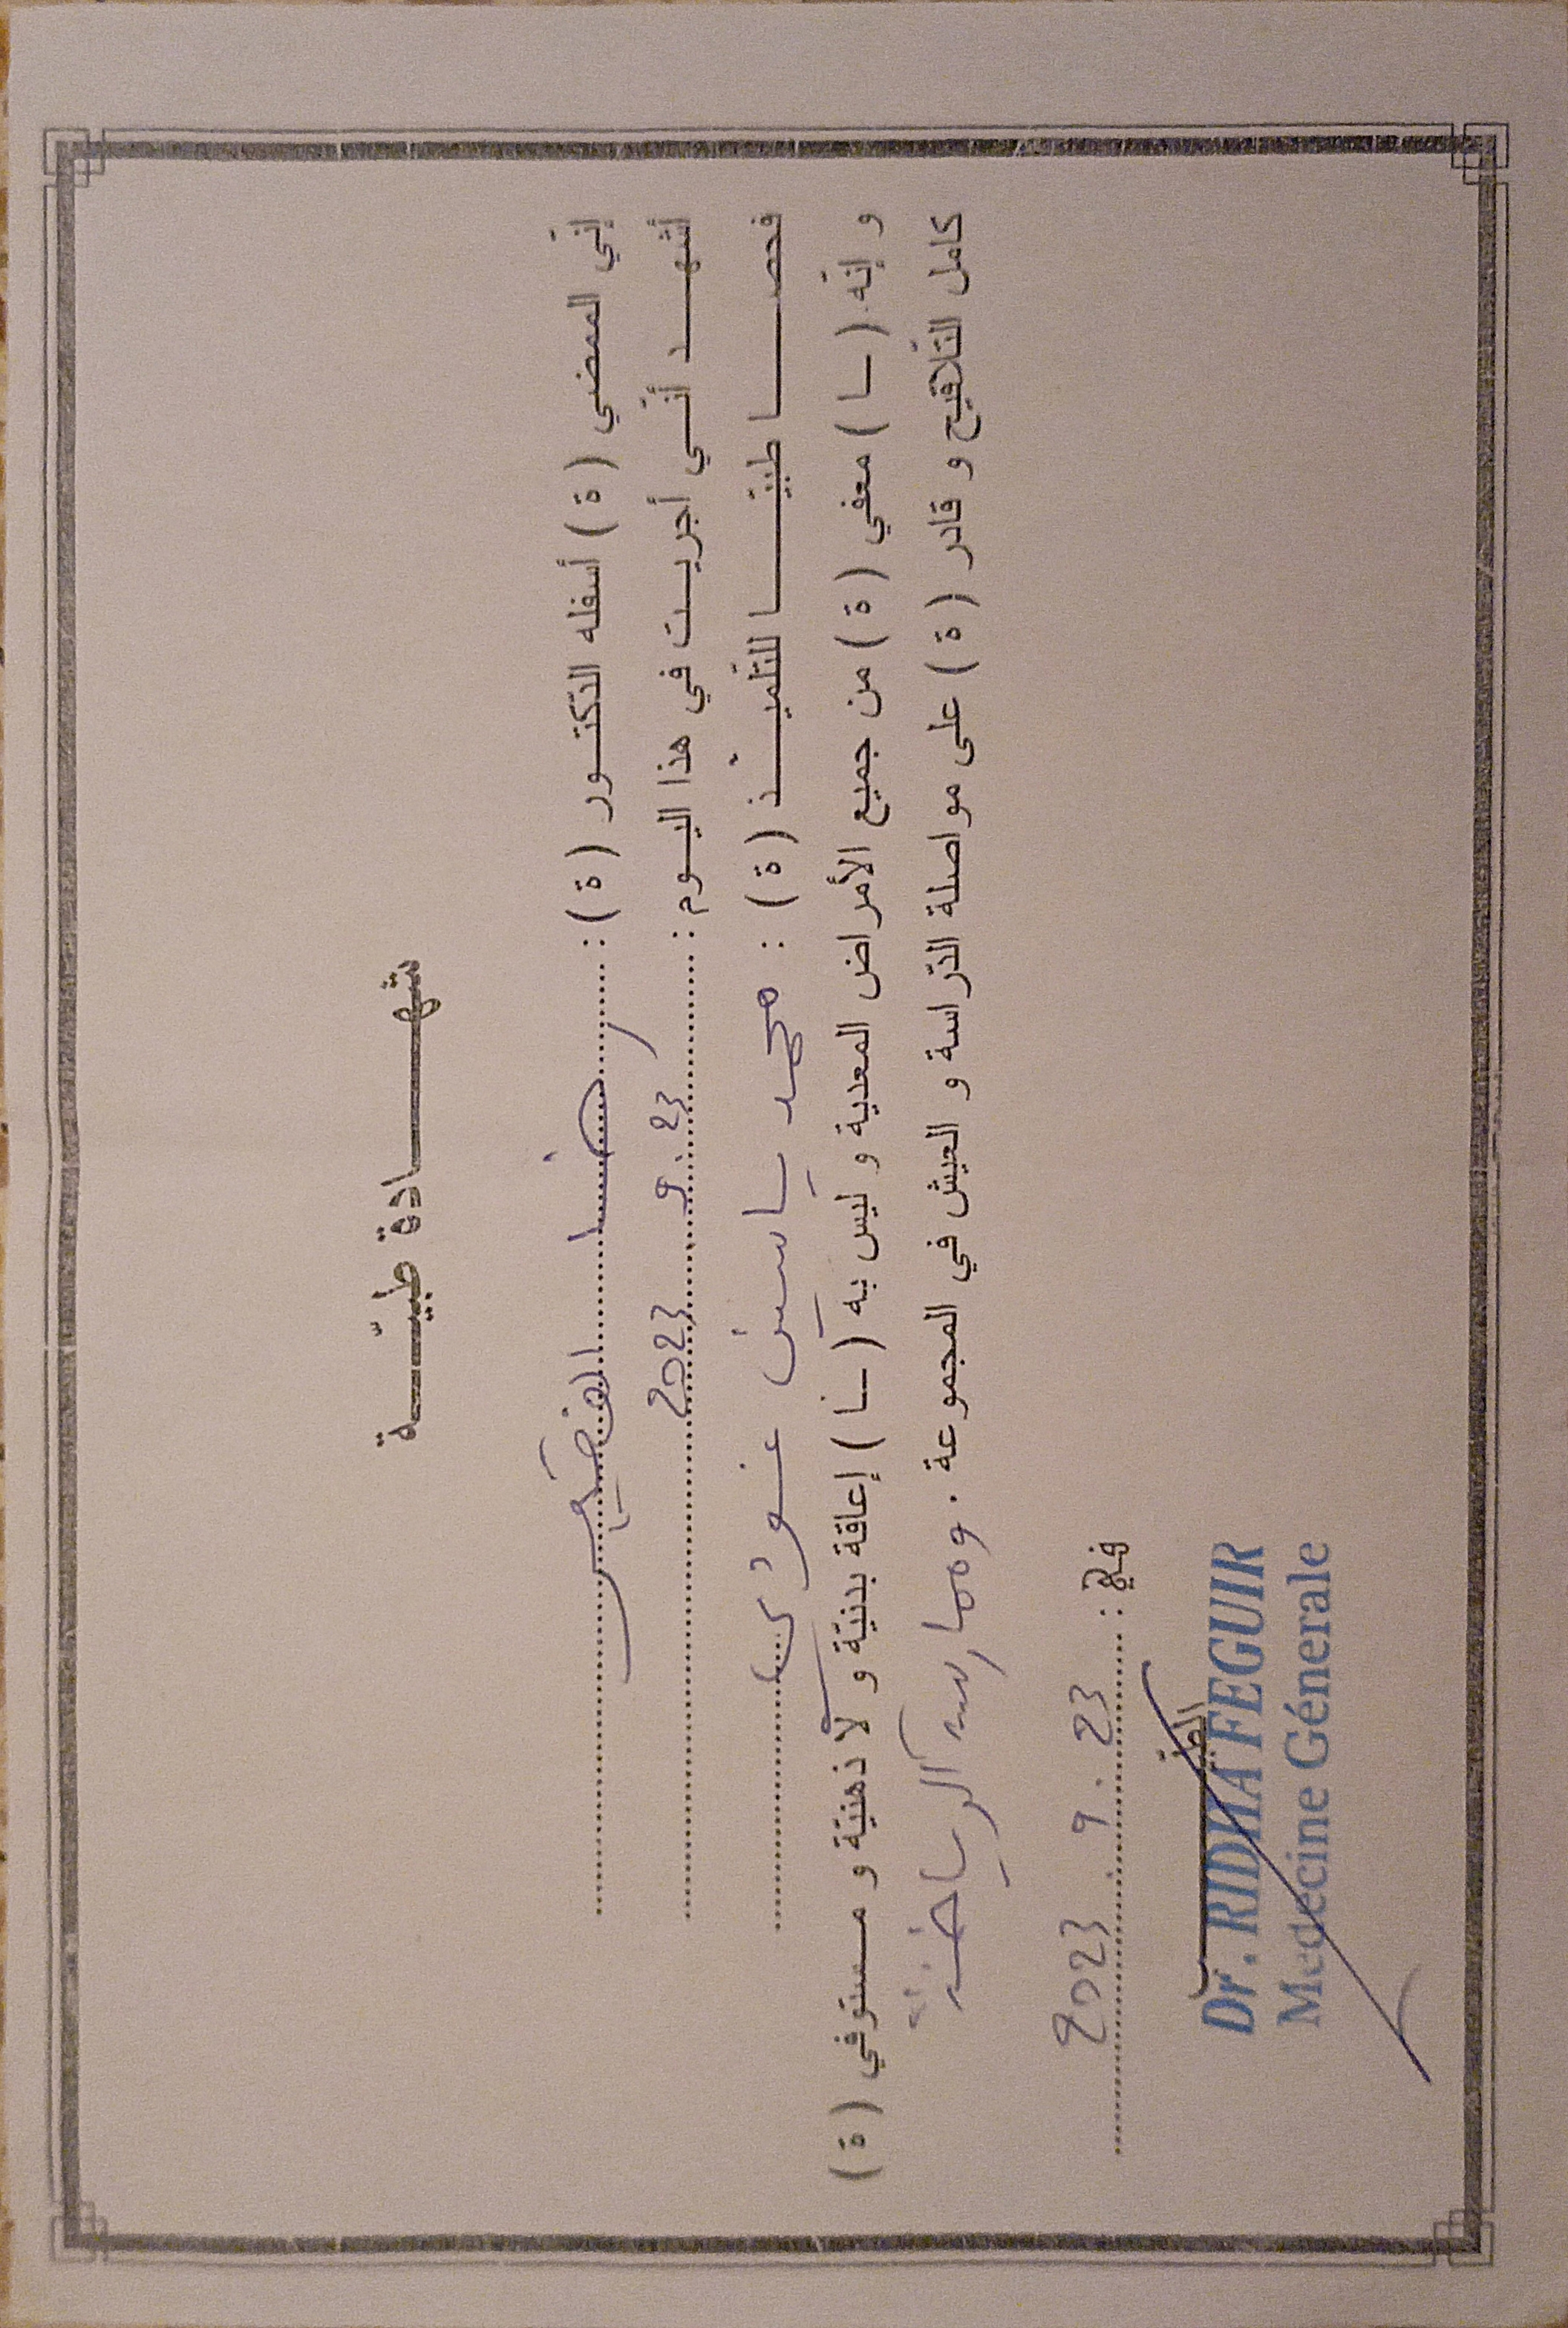 شهـــــادة طبيّـــــة
إنّي الممضي ( ة ) أسفله الدّكتــور ( ة ) : رضــا الفقير
أشهـــد أنّــي أجريــت في هذا اليــوم : 23 . 9 . 2023
فحصـــــا طبيّـــــا للتّلميــــذ ( ة ) : محمد ياسين
و إنّه ( ـا ) معفي ( ة ) من جميع الأمراض المعدية و ليس به ( ـا ) إعاقة بدنيّة و لا ذهنيّة و مستوفي ( ة )
كامل التّلاقيح و قادر ( ة ) على مواصلة الدّراسة و العيش في المجموعة . وممارسة الرياضة
في : 23 . 9 . 2023
الطبيـــــب
Dr. RIDHA FEGUIR
Medecine Génerale